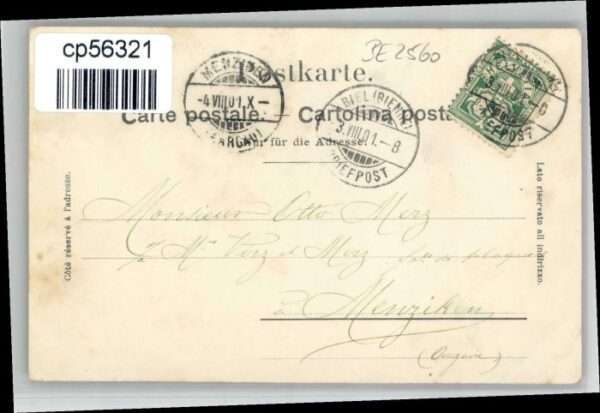 cp56321
BE 2560
Postkarte.
Carte postale. Cartolina posta
MENZIKEN
-4.VIII.01.X-
(AARGAU)
BIEL (BIENNE)
3.VIII.01.-8
BRIEFPOST
Nur für die Adresse.
Côté réservé à l'adresse.
Lato riservato all indirizzo.
Monsieur Otto Merz
Merz
à
Menziken
(Argovie)